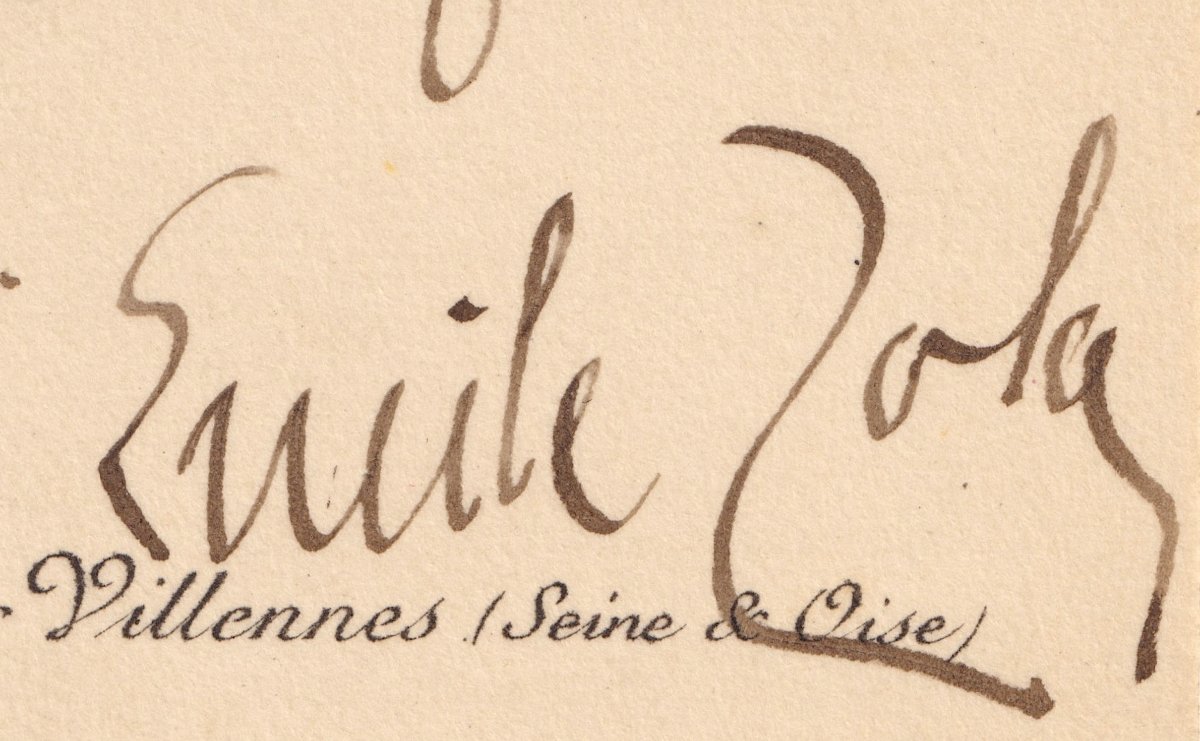 Emile Zola
Villennes (Seine & Oise)